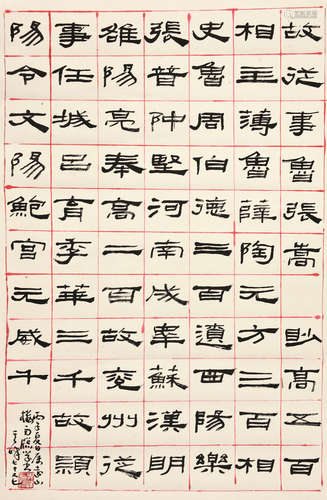 故從事魯張嵩眇高五百
相主薄魯薛陶元方三百
史魯周伯德三百遺西陽樂
張普仲堅河南成皋蘇漢明
雒陽亮奉高二百故兗州從
事任城呂育季華三千故潁
陽令文陽鮑宮元威千